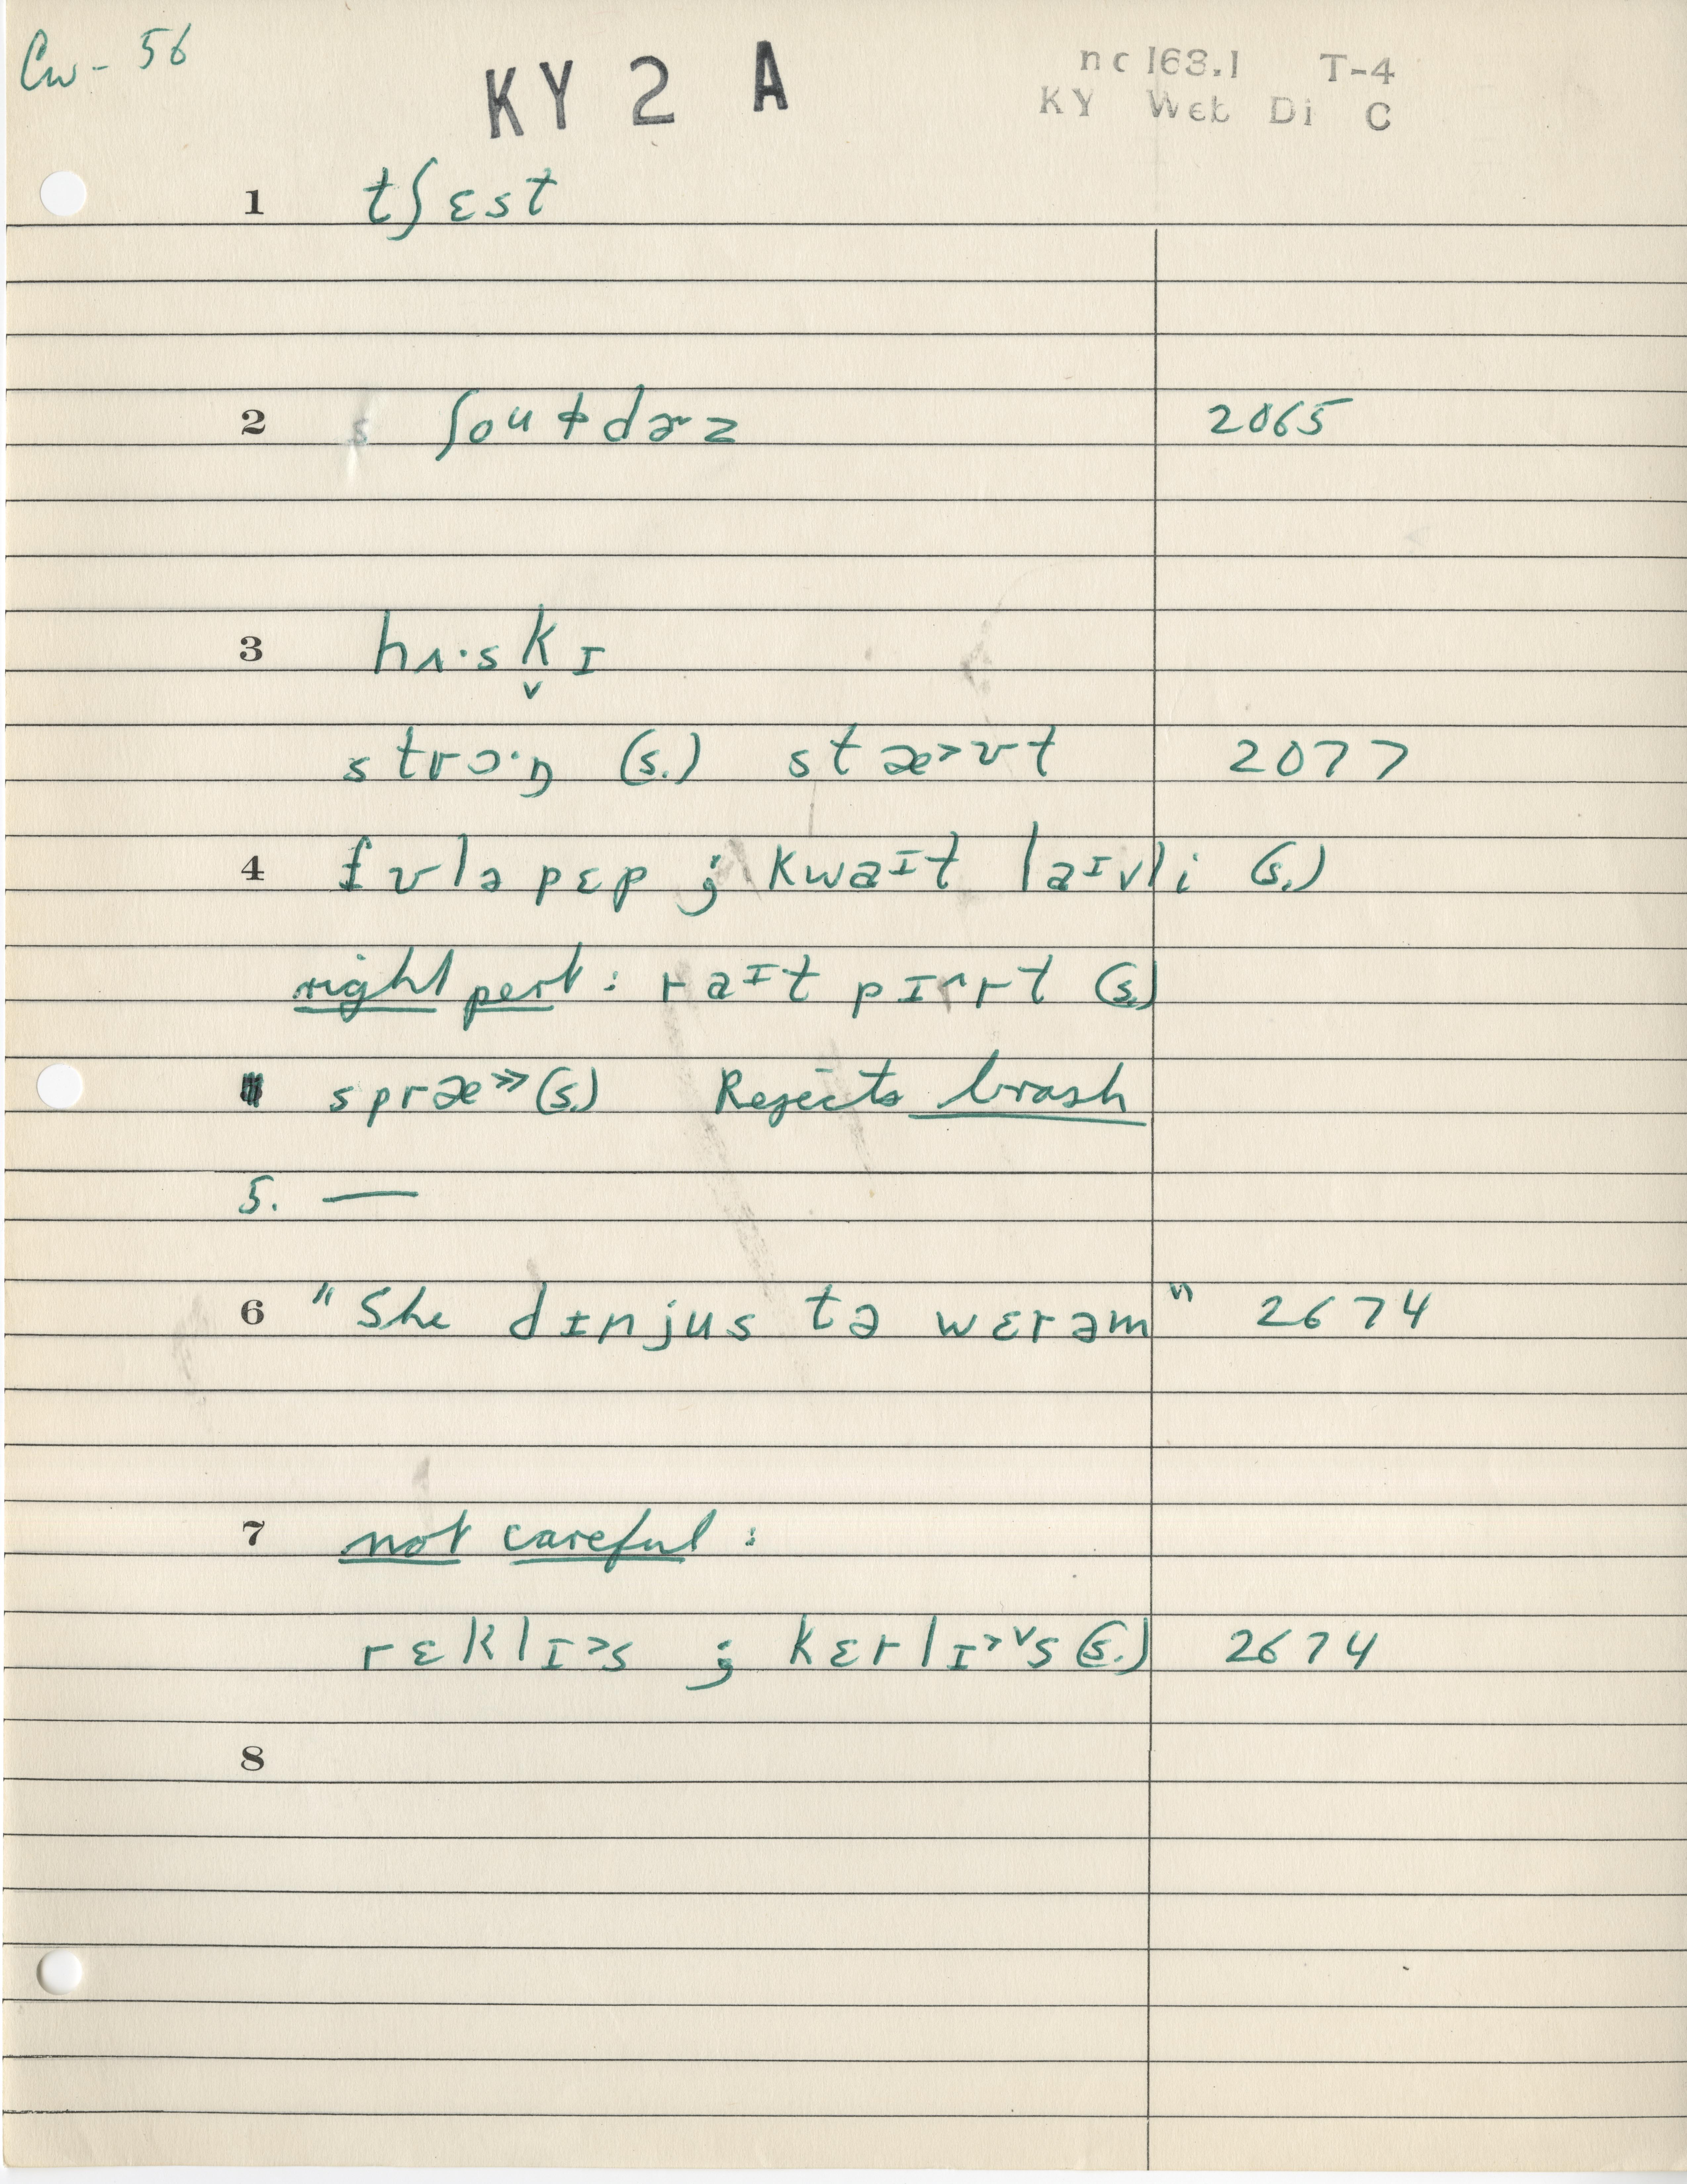 Cw - 56
KY 2 A
nc 163.1 T-4
KY Web Di C
1 tʃɛst
2 ʃoʊɫdɚz 2065
3 hʌ·sk̬ɪ
strɔ·ŋ (s.) stæ>ʊt 2077
4 fʊlə pɛp ; kwaɪt laɪvli (s.)
right pert : raɪt pɪrt (s.)
spræ>> (s.) Rejects brash
5. —
6 "She dɪnjus tə wɛrəm" 2674
7 not careful :
rɛklɪ>s ; kɛrlɪ>ˇs (s.) 2674
8